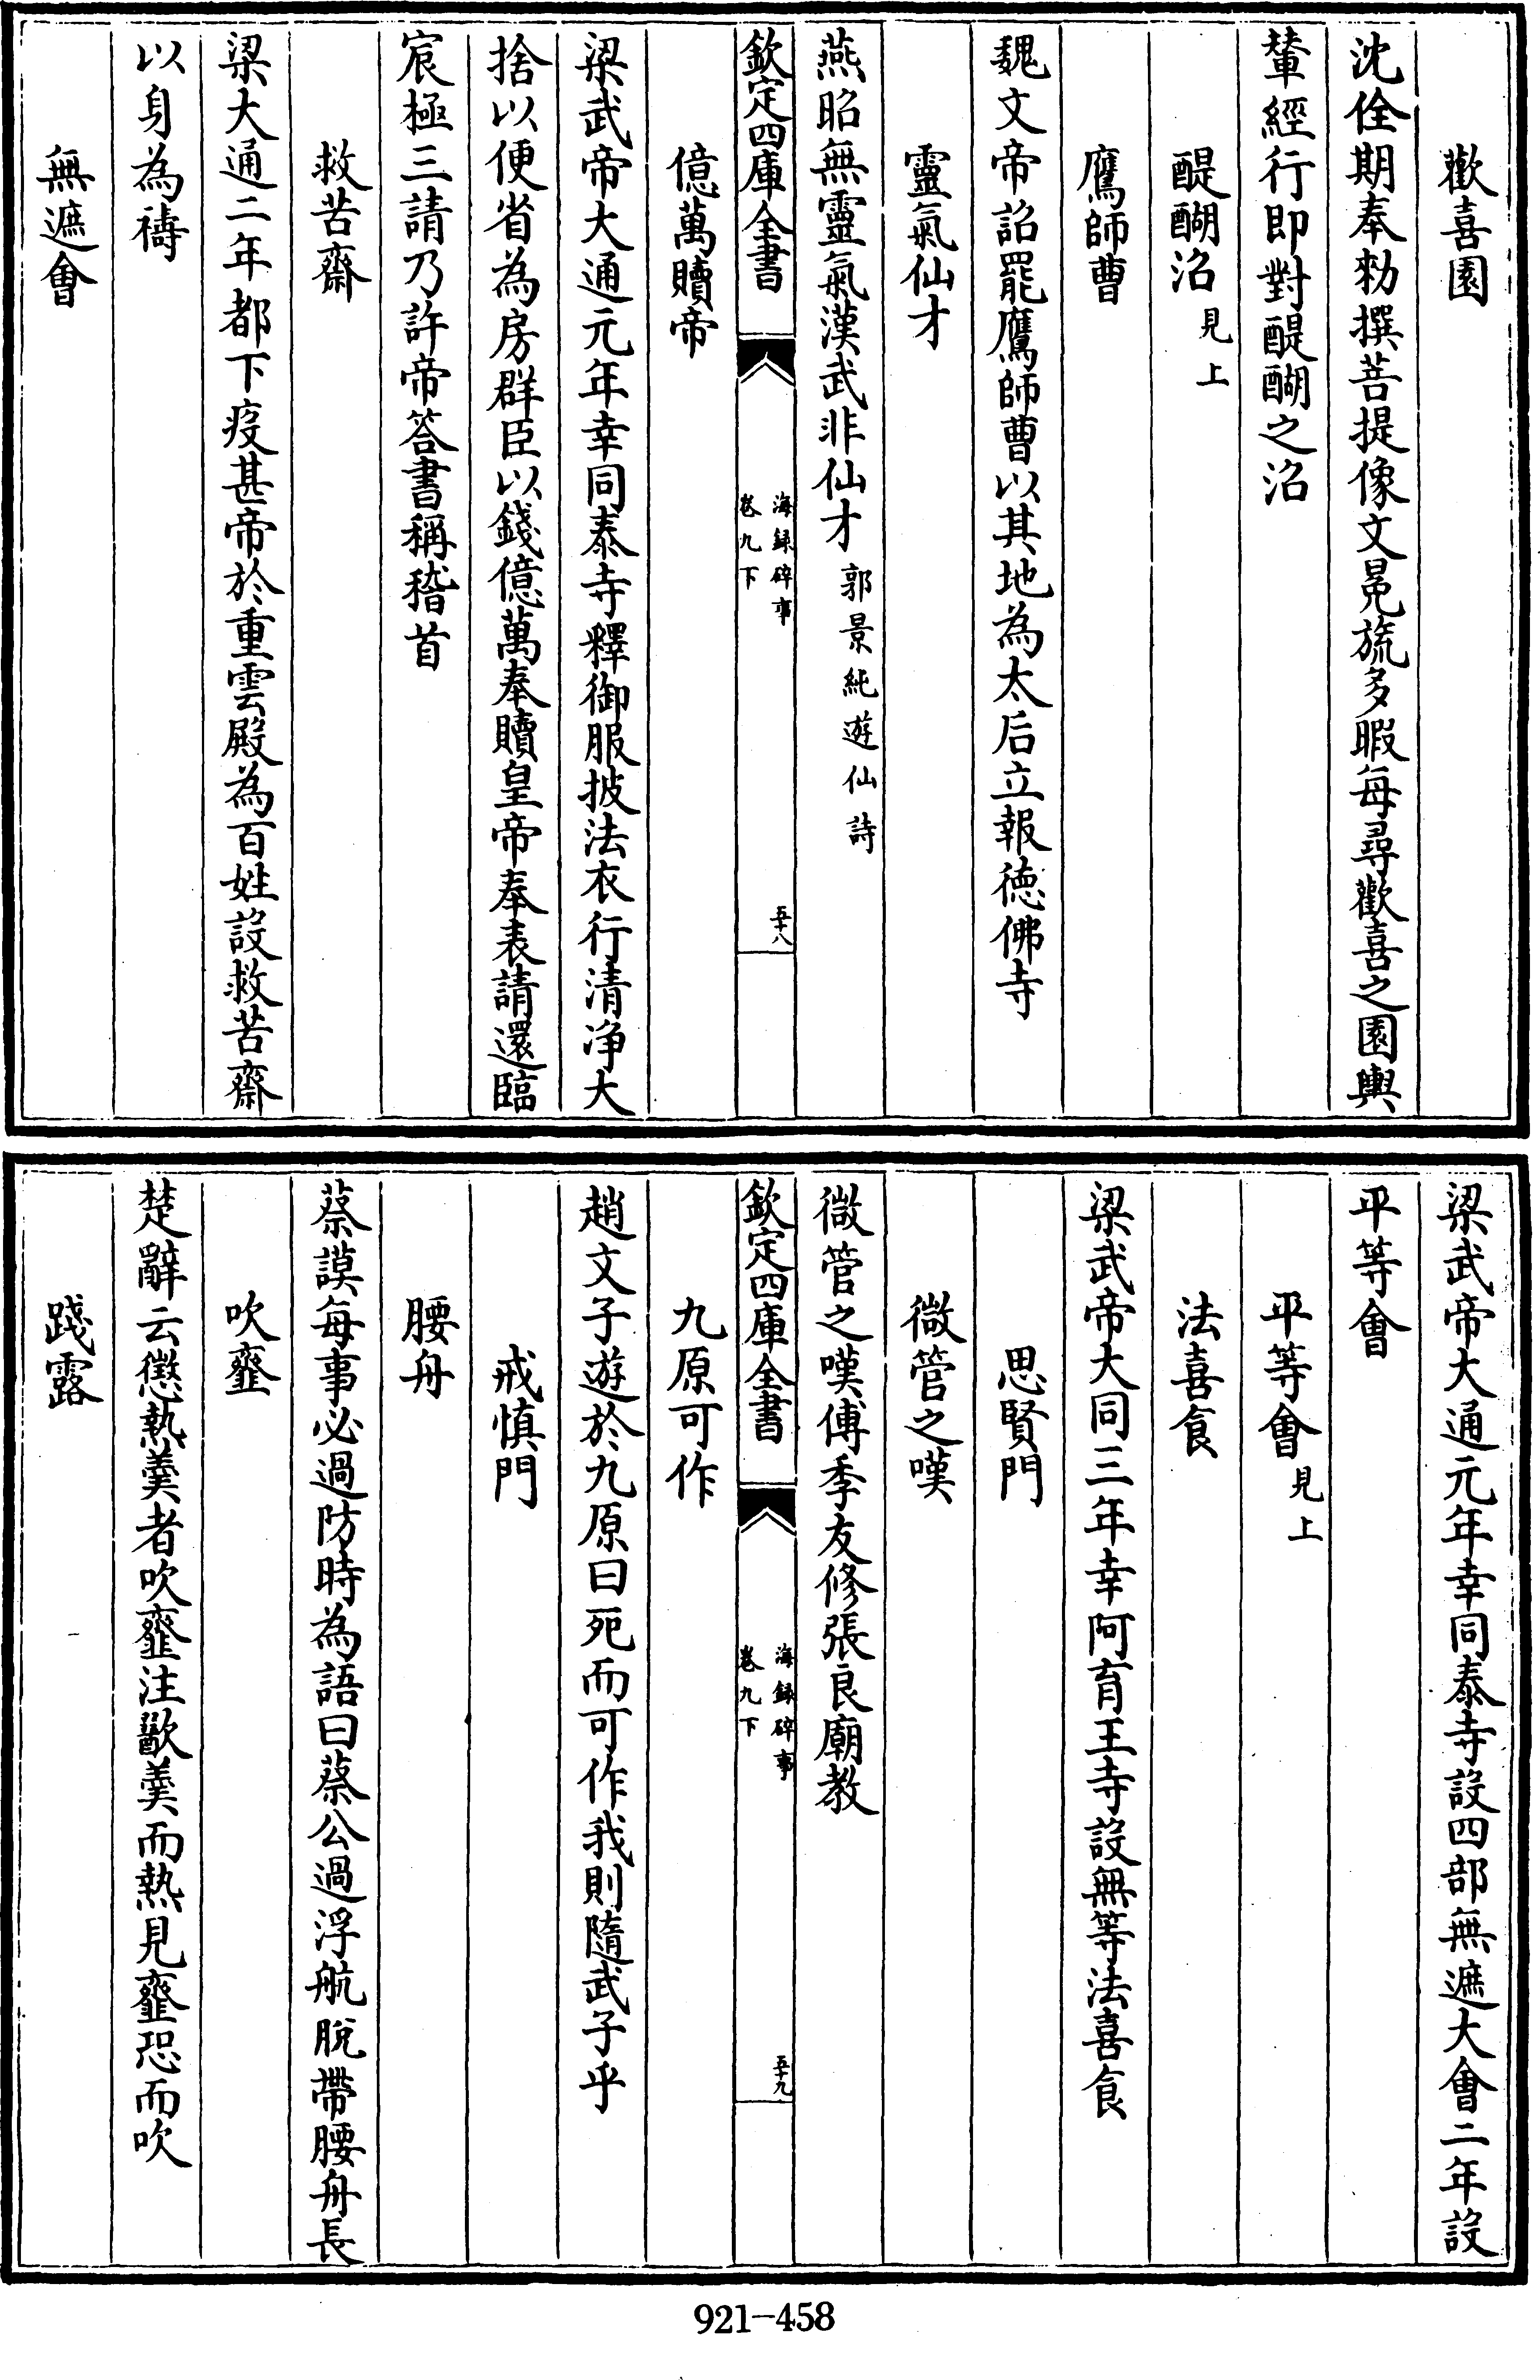 歡喜園
沈佺期奉勑撰菩提像文冕旒多暇每尋歡喜之園輿
輦經行即對醍醐之沼
醍醐沼見上
鷹師曹
魏文帝詔罷鷹師曹以其地為太后立報德佛寺
靈氣仙才
燕昭無靈氣漢武非仙才郭景純遊仙詩
欽定四庫全書
海録碎事
卷九下
五十八
億萬贖帝
梁武帝大通元年幸同泰寺釋御服披法衣行清净大
捨以便省為房群臣以錢億萬奉贖皇帝奉表請還臨
宸極三請乃許帝答書稱稽首
救苦齋
梁大通二年都下疫甚帝於重雲殿為百姓設救苦齋
以身為禱
無遮會
梁武帝大通元年幸同泰寺設四部無遮大會二年設
平等會
平等會見上
法喜食
梁武帝大同三年幸阿育王寺設無等法喜食
思賢門
微管之嘆
微管之嘆傅季友修張良廟教
欽定四庫全書
海録碎事
卷九下
五十九
九原可作
趙文子遊於九原曰死而可作我則隨武子乎
戒慎門
腰舟
蔡謨每事必過防時為語曰蔡公過浮航脫帶腰舟長
吹虀
楚辭云懲熱羮者吹虀注歠羮而熱見虀恐而吹
踐露
921-458